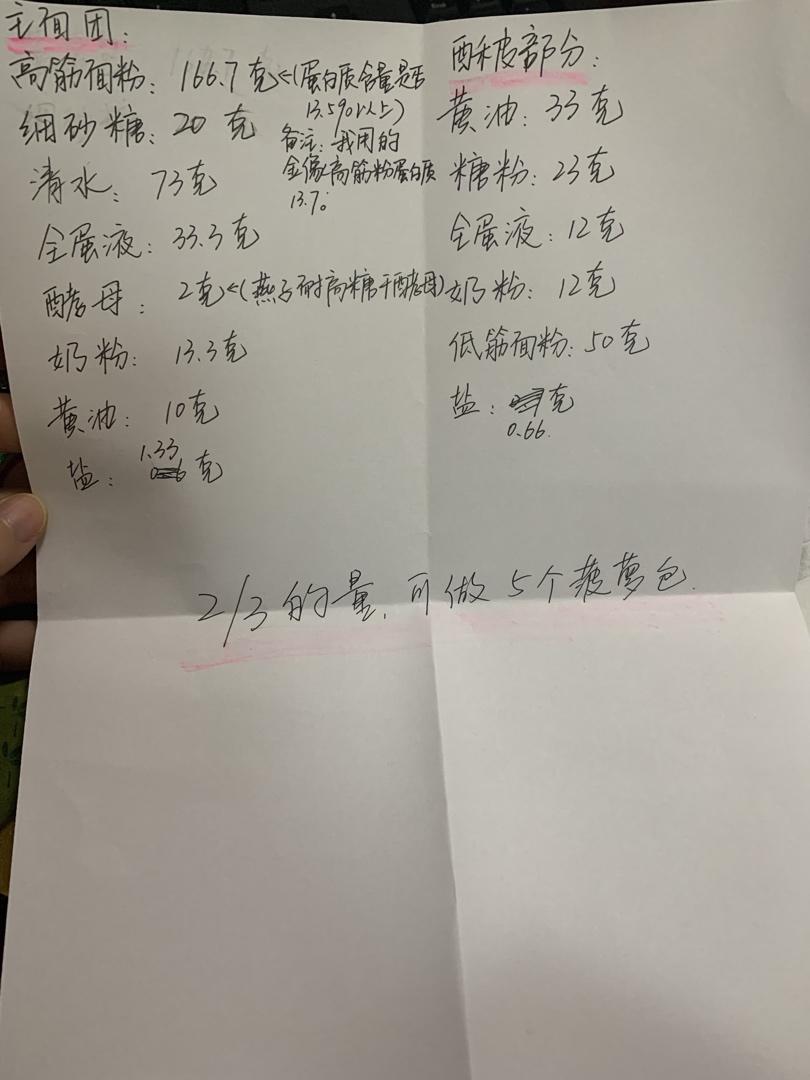 主面团：
高筋面粉：166.7克←(蛋白质含量是否
13.5%以上)
细砂糖：20克
备注：我用的
金像高筋粉蛋白质
13.7。
清水：73克
全蛋液：33.3克
酵母：2克←(燕子耐高糖干酵母)
奶粉：13.3克
黄油：10克
盐：1.33克
酥皮部分：
黄油：33克
糖粉：23克
全蛋液：12克
奶粉：12克
低筋面粉：50克
盐：克
0.66.
2/3的量，可做5个菠萝包.